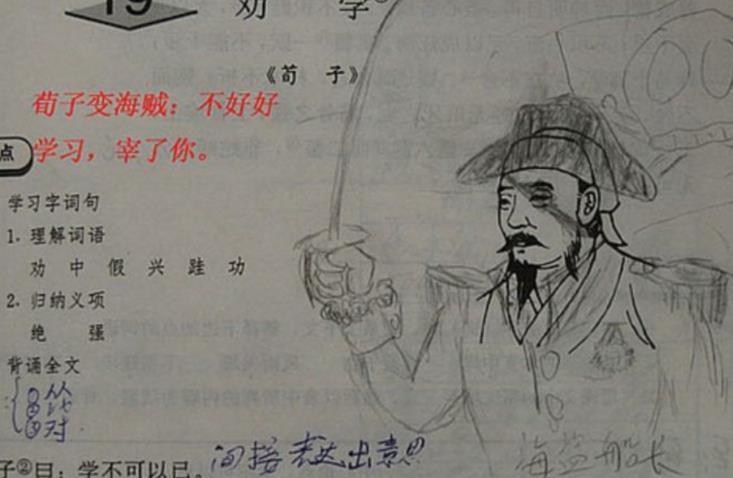 19 劝 学
《荀 子》
荀子变海贼：不好好
学习，宰了你。
点
学习字词句
1. 理解词语
劝 中 假 兴 跬 功
2. 归纳义项
绝 强
背诵全文
对
子②曰：学不可以已。间接表达出意思
海盗船长